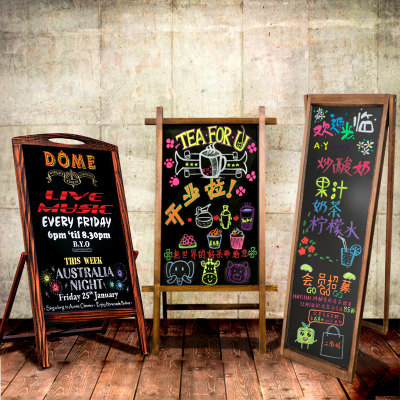 DÔME
LIVE
MUSIC
EVERY FRIDAY
6pm 'til 8.30pm
B.Y.O
THIS WEEK
AUSTRALIA
NIGHT
Friday 25th January
TEA FOR U
开业啦!
把世界的好茶带给您
欢迎光临
A·Y
炒酸奶
果汁
奶茶
柠檬水
会员招募
GO GO GO